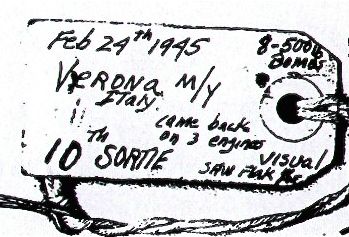 Feb 24th 1945
8-500lb
Bombs
VERONA M/Y
Italy
came back
on 3 engines
10TH SORTIE
VISUAL
SAW Flak